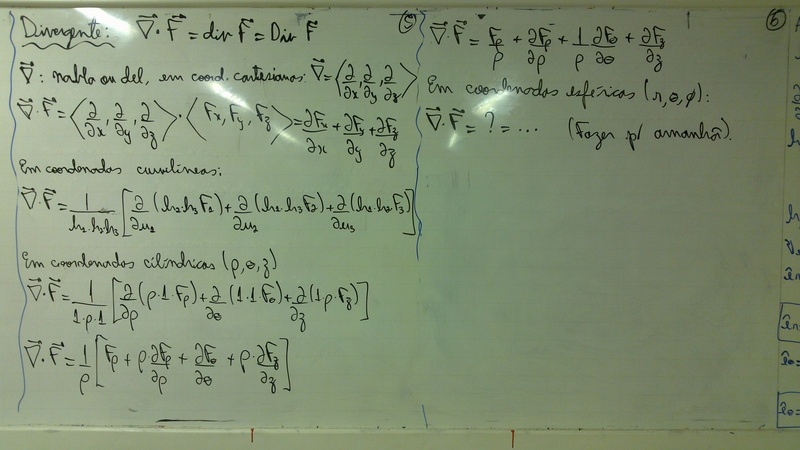 Divergente: ∇⃗·F⃗ = div F⃗ = Div F⃗
∇⃗: nabla ou del, em coord. cartesianas: ∇⃗ = ⟨∂/∂x, ∂/∂y, ∂/∂z⟩
∇⃗·F⃗ = ⟨∂/∂x, ∂/∂y, ∂/∂z⟩ · ⟨Fx, Fy, Fz⟩ = ∂Fx/∂x + ∂Fy/∂y + ∂Fz/∂z
Em coordenadas curvilíneas:
∇⃗·F⃗ = 1/(h1·h2·h3) [∂/∂u1 (h2·h3 F1) + ∂/∂u2 (h1·h3 F2) + ∂/∂u3 (h1·h2 F3)]
Em coordenadas cilíndricas (ρ, θ, z)
∇⃗·F⃗ = 1/(1·ρ·1) [∂/∂ρ (ρ·1·Fρ) + ∂/∂θ (1·1·Fθ) + ∂/∂z (1·ρ·Fz)]
∇⃗·F⃗ = 1/ρ [Fρ + ρ ∂Fρ/∂ρ + ∂Fθ/∂θ + ρ·∂Fz/∂z]
6
∇⃗·F⃗ = Fρ/ρ + ∂Fρ/∂ρ + 1/ρ ∂Fθ/∂θ + ∂Fz/∂z
Em coordenadas esféricas (r, θ, φ):
∇⃗·F⃗ = ? = ... (Fazer p/ amanhã).